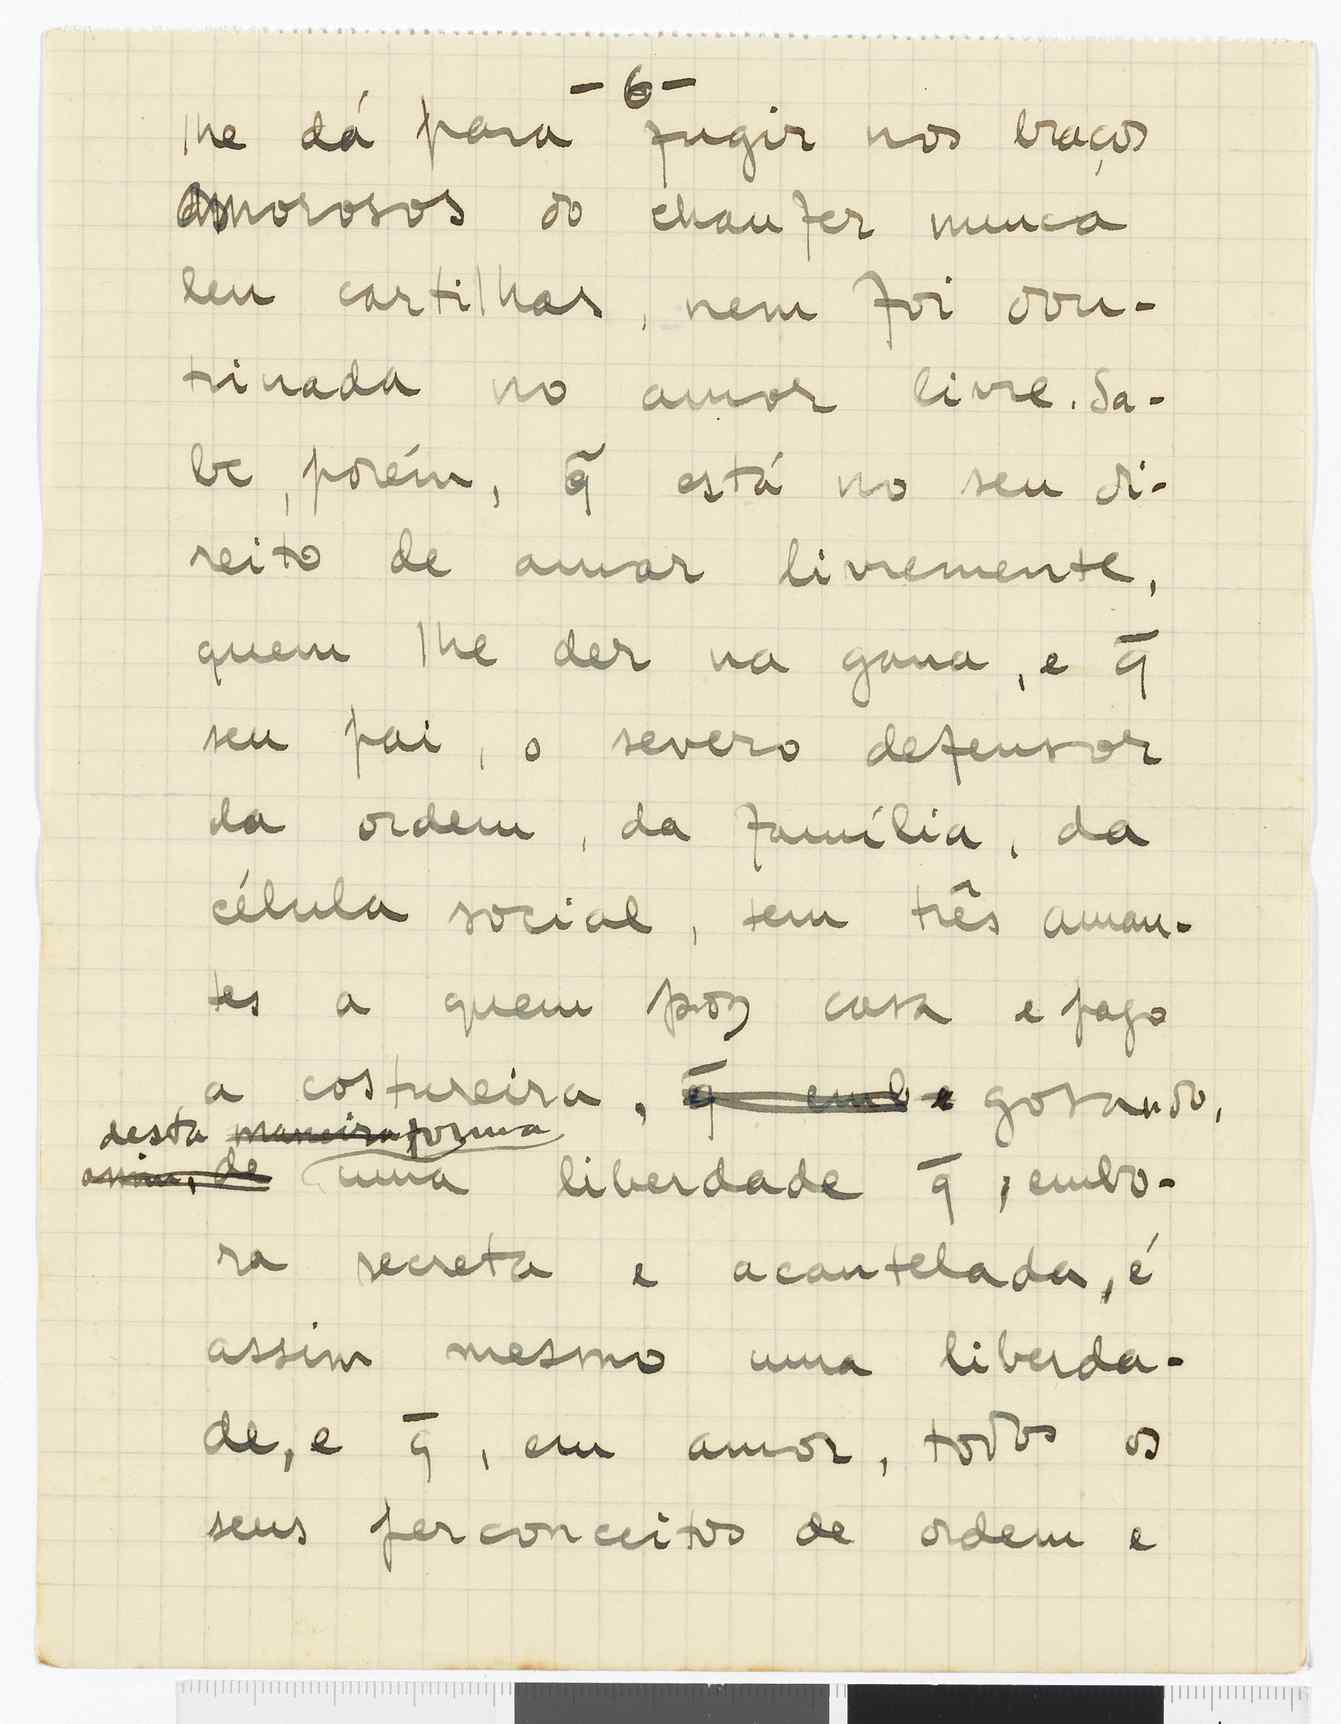 - 6 -
lhe dá para fugir nos braços
amorosos do chaufer nunca
leu cartilhas, nem foi dou-
trinada no amor livre. Sa-
be, porém, q̃ está no seu di-
reito de amar livremente,
quem lhe der na gana, e q̄
seu pai, o severo defensor
da ordem, da família, da
célula social, tem três aman-
tes a quem poz casa e paga
a costureira, q̄ emb e gosando,
desta maneira forma
assim, de uma liberdade q̄, embo-
ra secreta e acautelada, é
assim mesmo uma liberda-
de, e q̄, em amor, todos os
seus perconceitos de ordem e